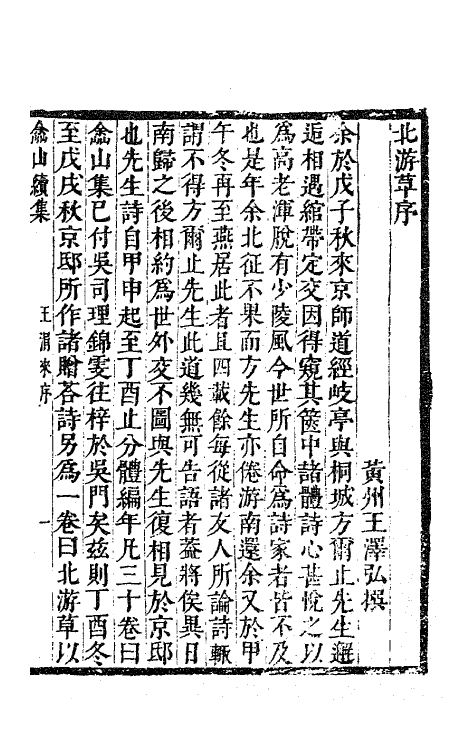 北游草序
黃州王澤弘撰
余於戊子秋來京師道經岐亭與桐城方爾止先生邂
逅相遇綰帶定交因得窺其篋中諸體詩心甚悅之以
爲高老渾脫有少陵風今世所自命爲詩家者皆不及
也是年余北征不果而方先生亦倦游南還余又於甲
午冬再至燕居此者且四載餘每從諸友人所論詩輒
謂不得方爾止先生此道幾無可告語者蓋將俟異日
南歸之後相約爲世外交不圖與先生復相見於京邸
也先生詩自甲申起至丁酉止分體編年凡三十卷曰
嵞山集已付吳司理錦雯往梓於吳門矣茲則丁酉冬
至戊戌秋京邸所作諸贈荅詩另爲一卷曰北游草以
嵞山續集
王涓來序
一